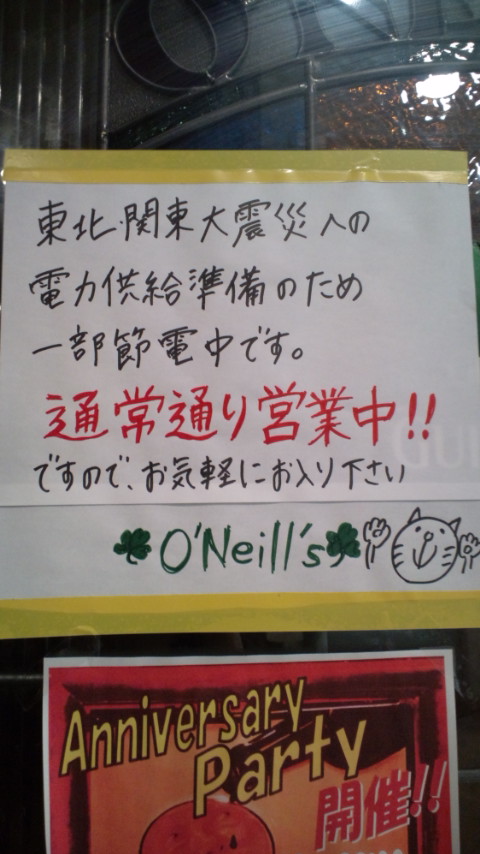 東北・関東大震災への
電力供給準備のため
一部節電中です。
通常通り営業中!!
ですので、お気軽にお入り下さい
O'Neill's
Anniversary
Party
開催!!